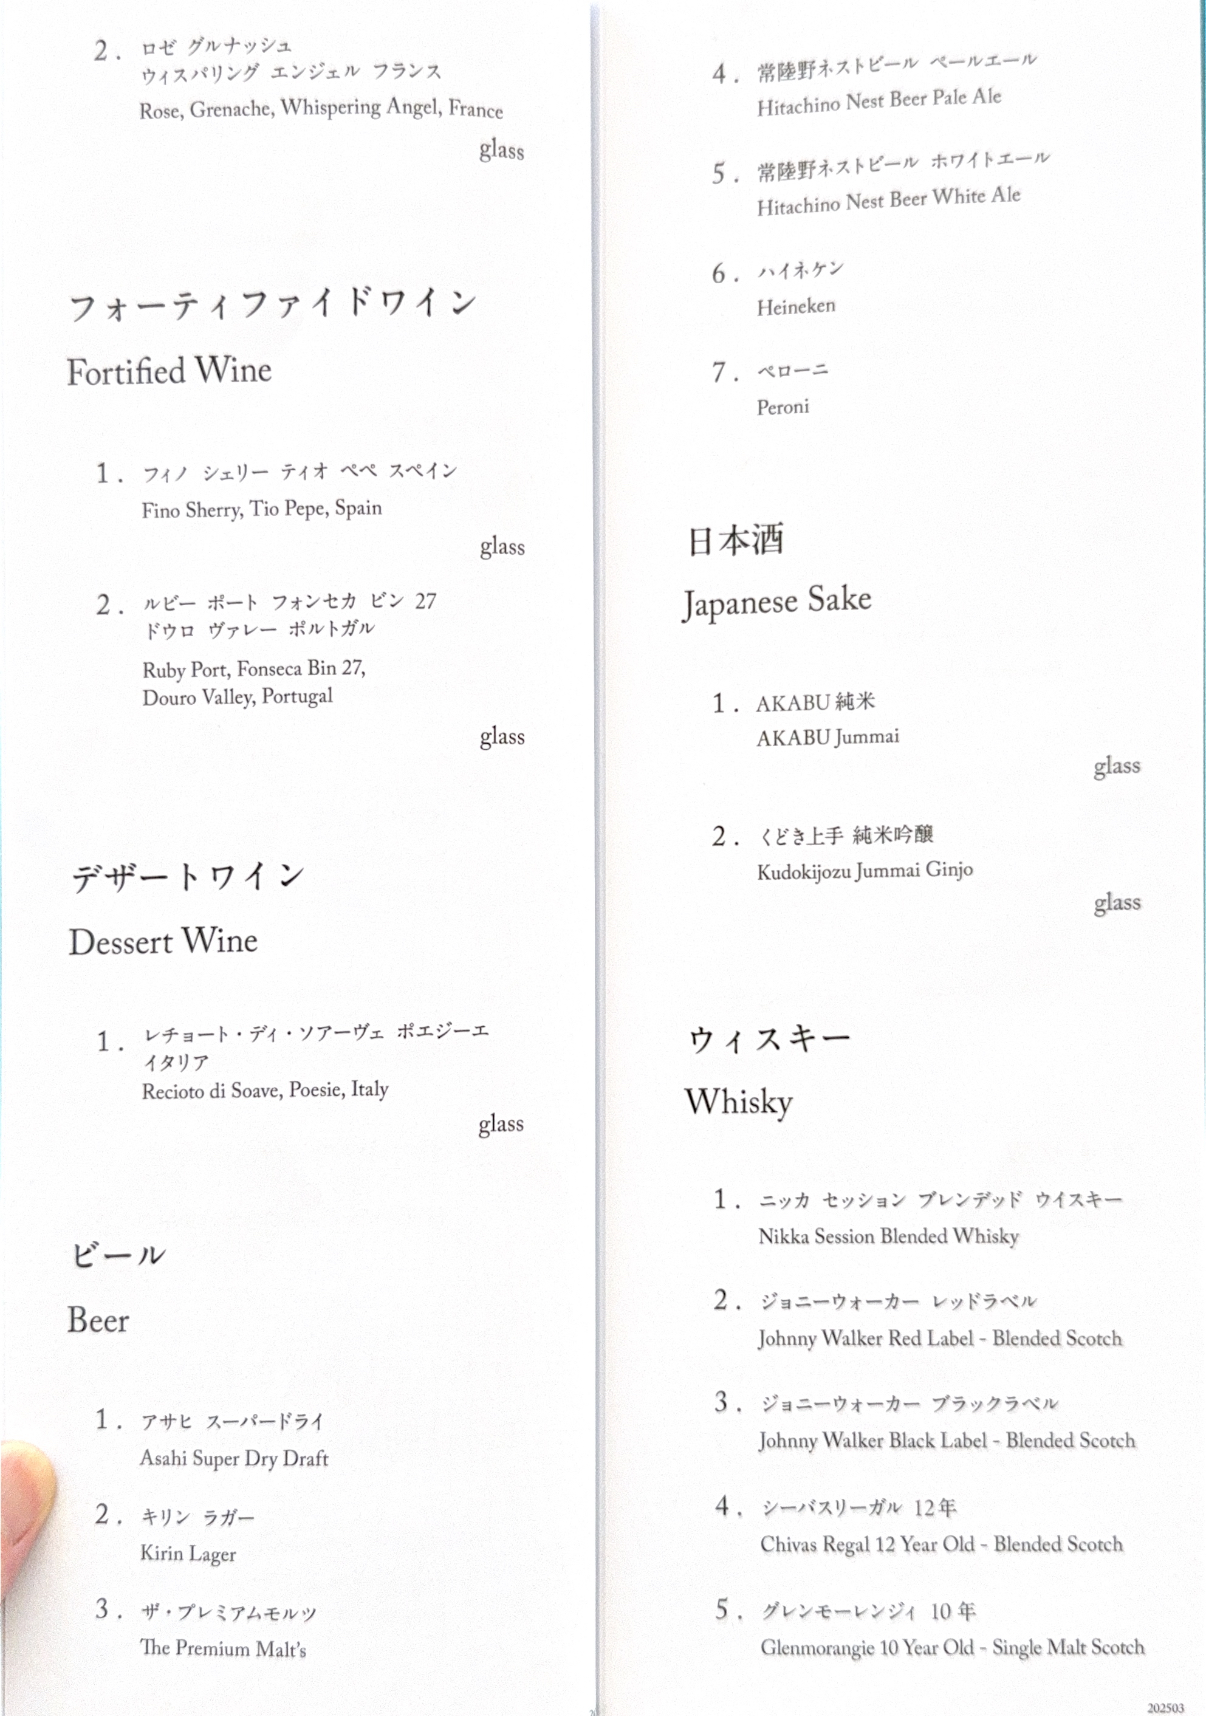 2. ロゼ グルナッシュ
ウィスパリング エンジェル フランス
Rose, Grenache, Whispering Angel, France
glass
フォーティファイドワイン
Fortified Wine
1. フィノ シェリー ティオ ペペ スペイン
Fino Sherry, Tio Pepe, Spain
glass
2. ルビー ポート フォンセカ ビン 27
ドウロ ヴァレー ポルトガル
Ruby Port, Fonseca Bin 27,
Douro Valley, Portugal
glass
デザートワイン
Dessert Wine
1. レチョート・ディ・ソアーヴェ ポエジーエ
イタリア
Recioto di Soave, Poesie, Italy
glass
ビール
Beer
1. アサヒ スーパードライ
Asahi Super Dry Draft
2. キリン ラガー
Kirin Lager
3. ザ・プレミアムモルツ
The Premium Malt's
4. 常陸野ネストビール ペールエール
Hitachino Nest Beer Pale Ale
5. 常陸野ネストビール ホワイトエール
Hitachino Nest Beer White Ale
6. ハイネケン
Heineken
7. ペローニ
Peroni
日本酒
Japanese Sake
1. AKABU 純米
AKABU Jummai
glass
2. くどき上手 純米吟醸
Kudokijozu Jummai Ginjo
glass
ウィスキー
Whisky
1. ニッカ セッション ブレンデッド ウイスキー
Nikka Session Blended Whisky
2. ジョニーウォーカー レッドラベル
Johnny Walker Red Label - Blended Scotch
3. ジョニーウォーカー ブラックラベル
Johnny Walker Black Label - Blended Scotch
4. シーバスリーガル 12年
Chivas Regal 12 Year Old - Blended Scotch
5. グレンモーレンジィ 10 年
Glenmorangie 10 Year Old - Single Malt Scotch
202503